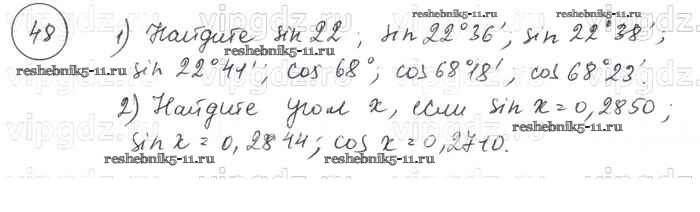 48 1) Найдите sin 22; sin 22°36'; sin 22°38';
sin 22°41'; cos 68°; cos 68°18'; cos 68°23'
2) Найдите угол x, если sin x = 0,2850;
sin x = 0,2844; cos x = 0,2710.
reshebnik5-11.ru
reshebnik5-11.ru
reshebnik5-11.ru
reshebnik5-11.ru
reshebnik5-11.ru
reshebnik5-11.ru
reshebnik5-11.ru